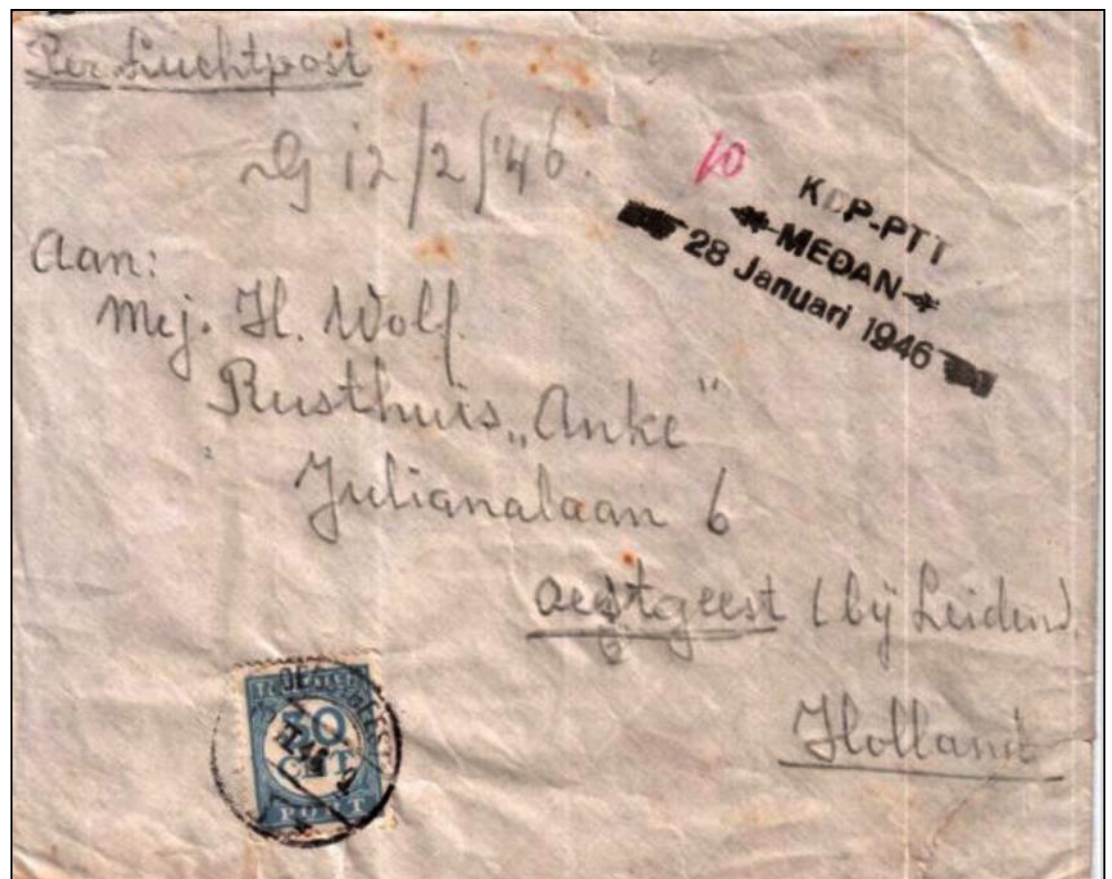 Per Luchtpost
12/2/'46.
10
KDP-PTT
MEDAN
28 Januari 1946
Aan:
Mej. H. Wolf.
Rusthuis „Anke"
Julianalaan 6
Oegstgeest (bij Leiden).
Holland
OEGSTGEEST
50
CNT
PORT